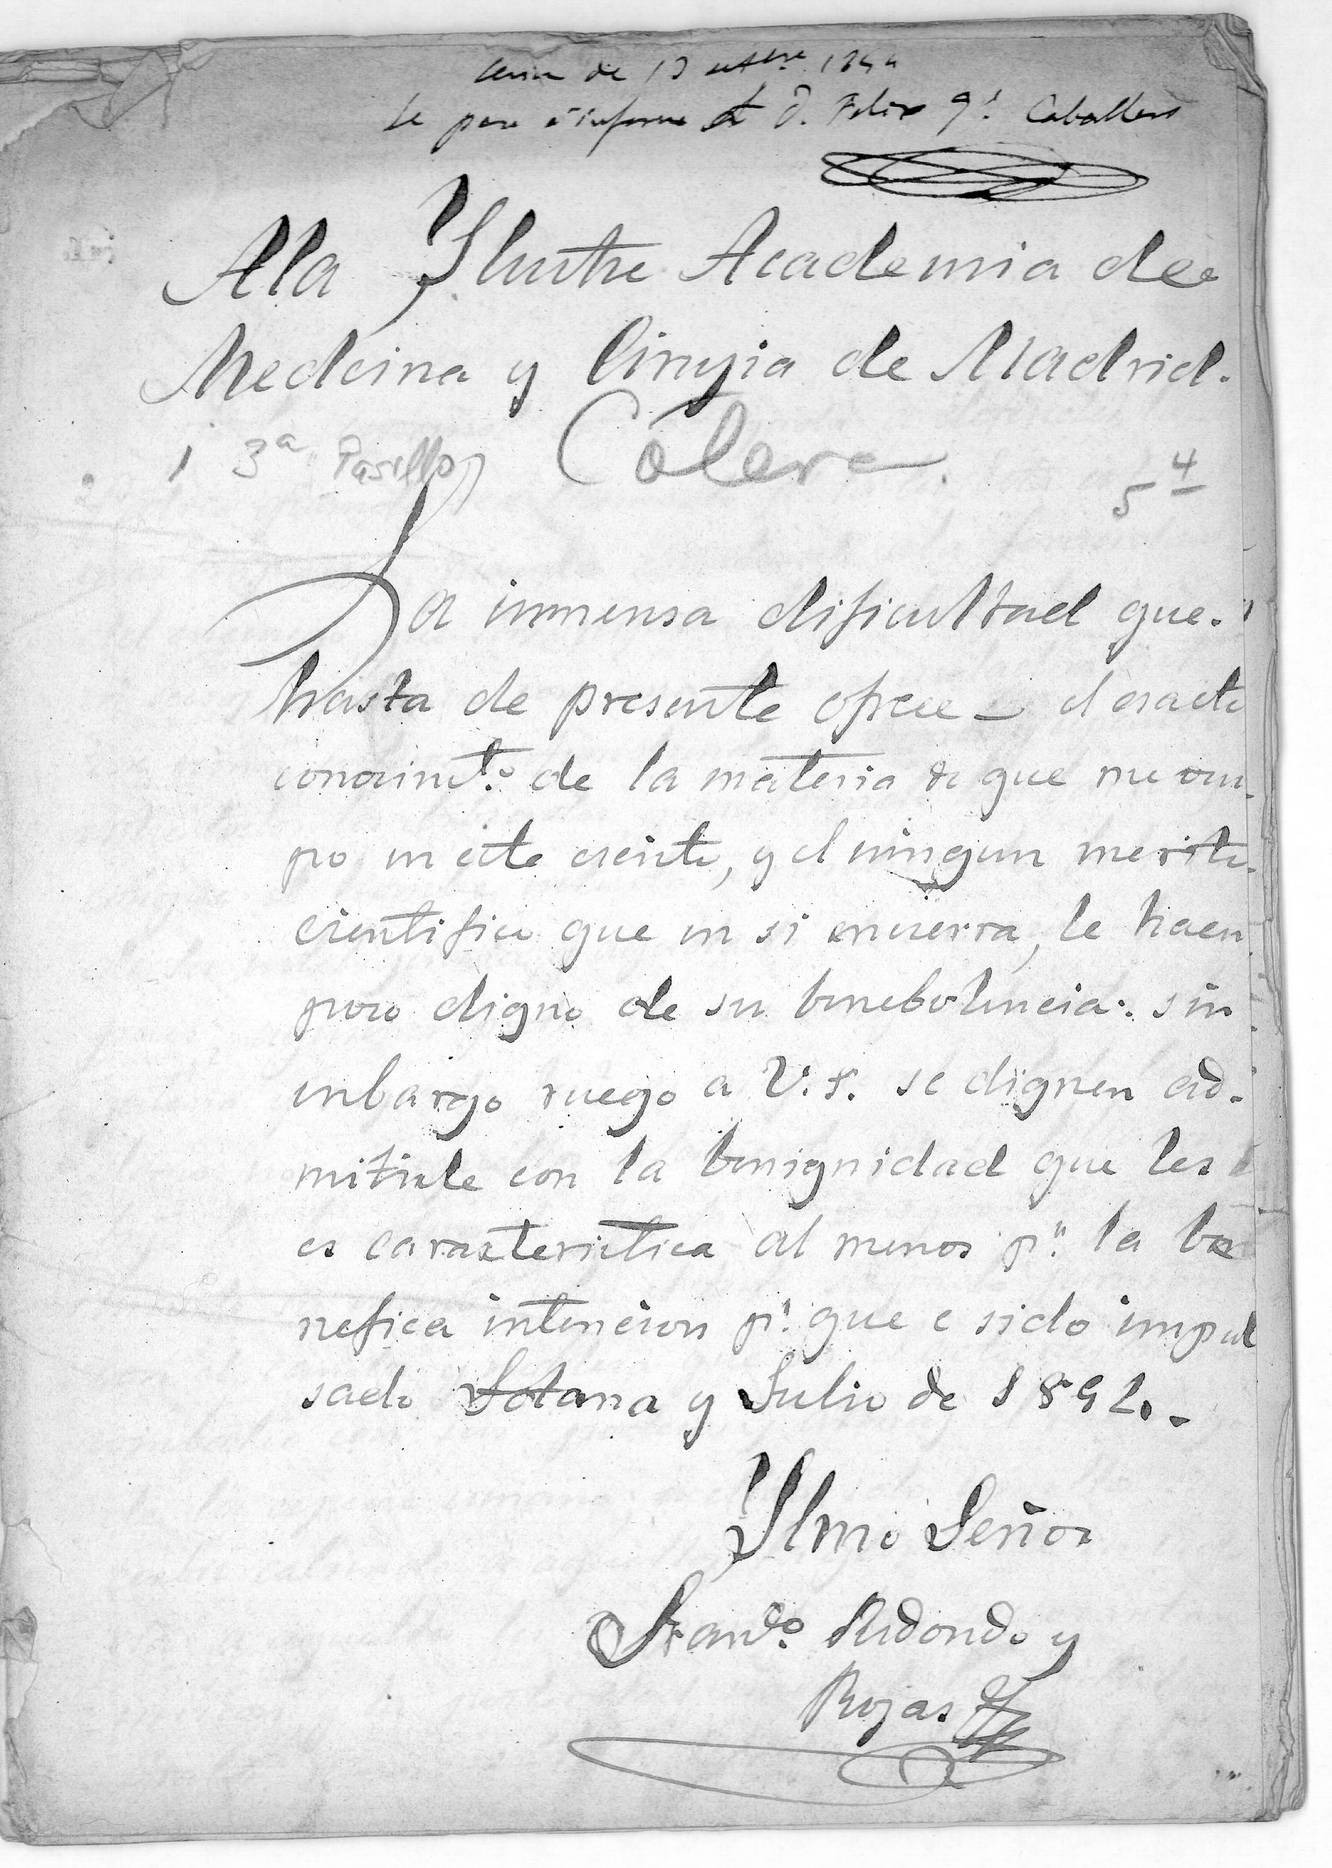 de 13 setbre
Se pasa á informe de D. Felix Ga. Caballero
Ala Ylustre Academia de
Medicina y Cirugia de Madrid.
1 3ª Pasillo Cólera.
5 4
La inmensa dificultad que
hasta de presente ofrece el esacto
conocimto. de la materia de que me ocu-
po en este escrito, y el ningun merito
cientifico que en si encierra, le hacen
poco digno de su benebolencia: sin
enbargo ruego a V.S. se dignen ad-
mitirle con la benignidad que les
es carasteristica al menos pr. la be
nefica intencion pr. que e sido impul
sado Sotana y Julio de
Ylmo Señor
Redondo y
Rojas